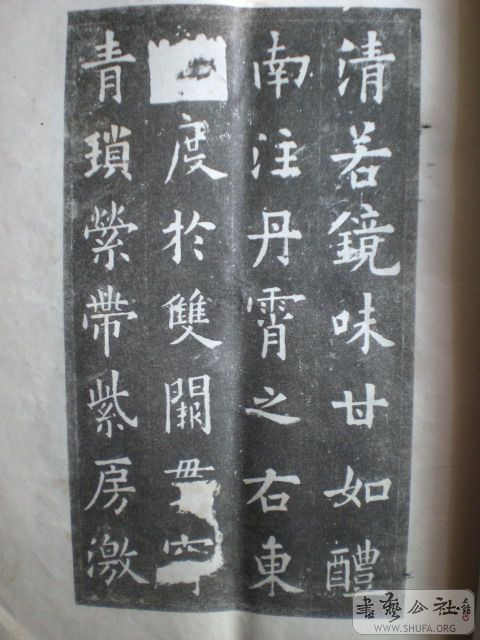 清若鏡味甘如醴
南注丹霄之右東
度於雙闕貫穿
青瑣縈帶紫房激
書藝公社
WWW.SHUFA.ORG